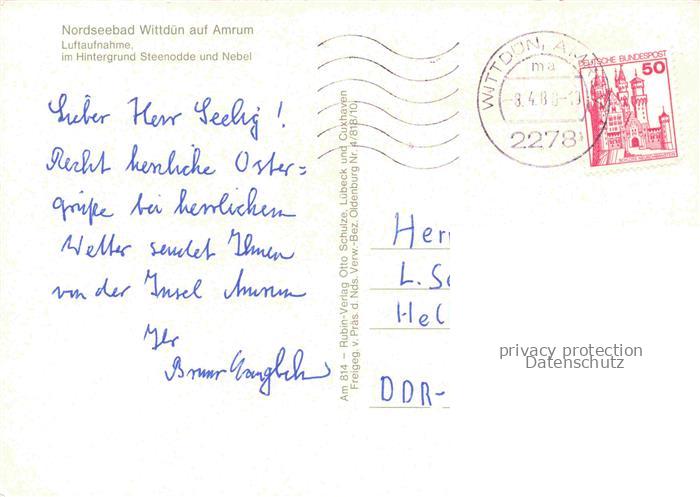 Nordseebad Wittdün auf Amrum
Luftaufnahme,
im Hintergrund Steenodde und Nebel
Lieber Herr Seelig!
Recht herzliche Oster=
grüße bei herrlichem
Wetter sendet Ihnen
von der Insel Amrum
Ihr
Am 814 – Rubin-Verlag Otto Schulze, Lübeck und Cuxhaven
Freigeg. v. Präs. d. Nds. Verw.-Bez. Oldenburg Nr. 4/818/10
WITTDÜN, AM
ma
2278
DEUTSCHE BUNDESPOST
50
Her
L. Sc
Hel
DDR-
privacy protection
Datenschutz